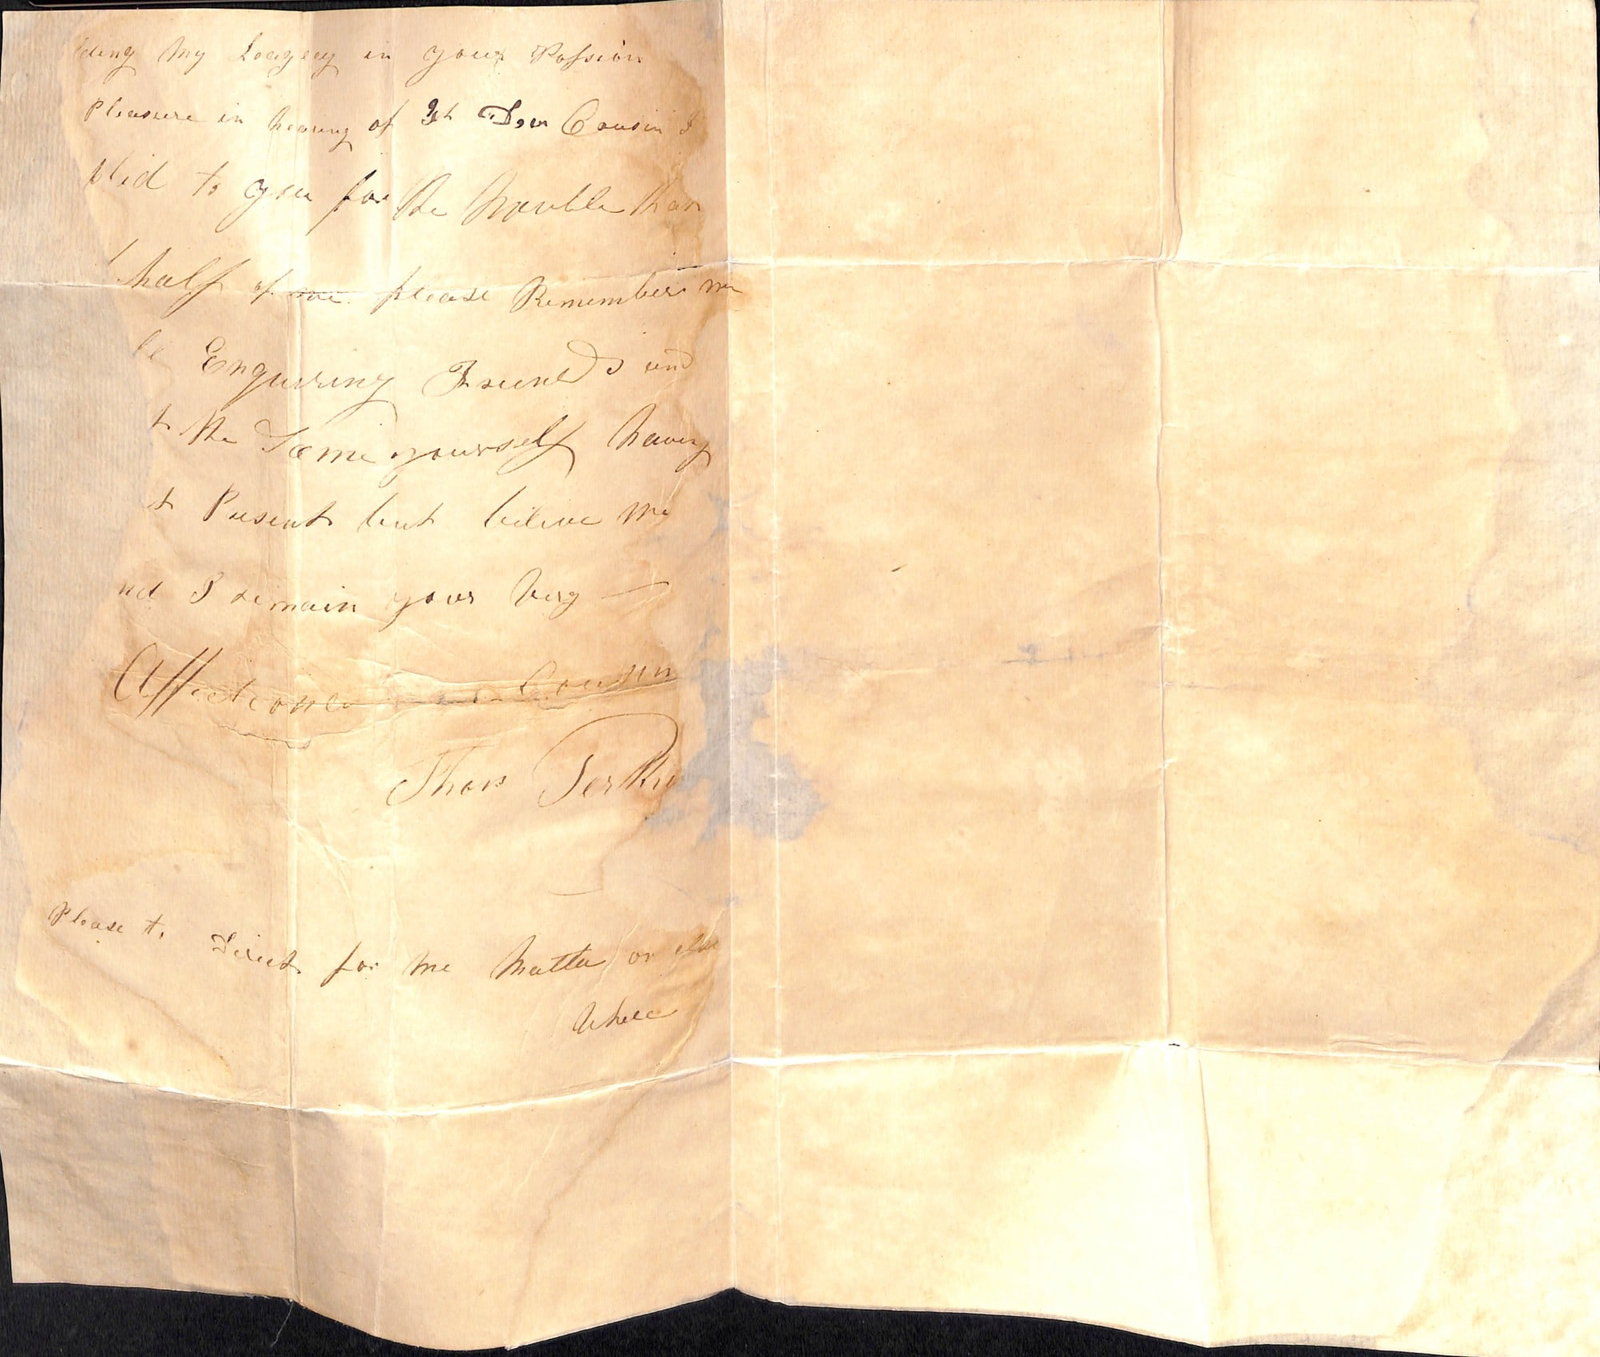 ding My Leagecy in your Possion
Pleasure in hearing of it Dear Cousin I
blid to you for the trouble than
half of me please Remember me
Enquiring Friends and
t the Same yourself having
t Present but beleive me
nd I remain your Very
Affectionate Cousin
Thos Perki
Please to Direct for me Matta or else
Where